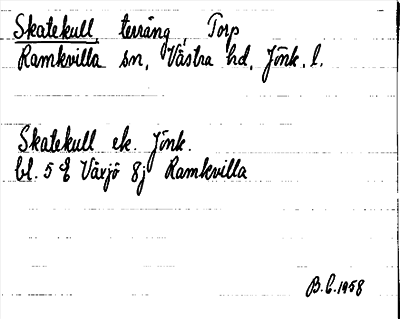 Skatekull, terräng, Torp
Ramkvilla sn, Västra hd, Jönk. l.
Skatekull ek. Jönk.
bl. 5 E Växjö 8j Ramkvilla
B.C. 1958